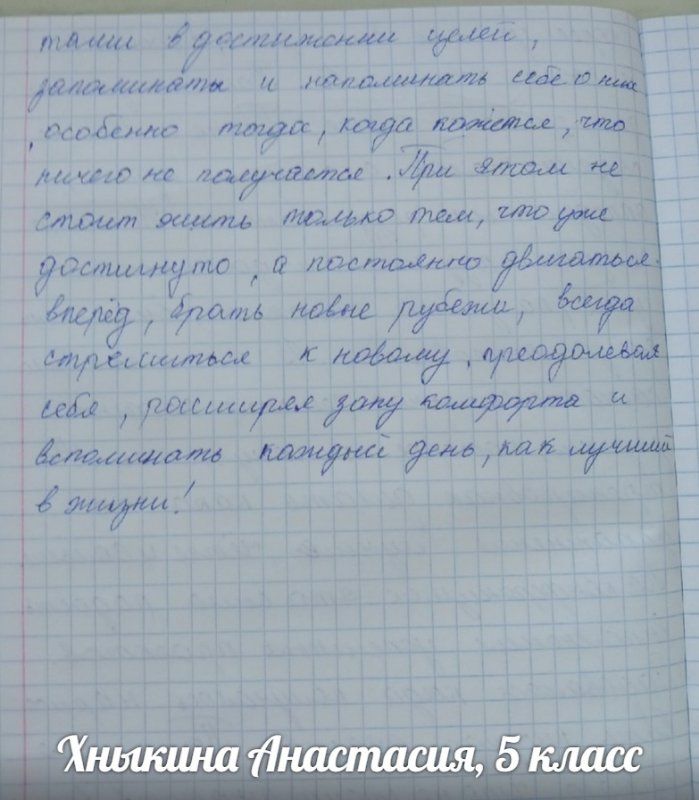 тами в достижении целей,
запоминать и напоминать себе о них
, особенно тогда, когда кажется, что
ничего не получается. При этом не
стоит жить только тем, что уже
достигнуто, а постоянно двигаться
вперёд, брать новые рубежи, всегда
стремиться к новому, преодолевая
себя, расширяя зону комфорта и
вспоминать каждый день, как лучший
в жизни!
Хныкина Анастасия, 5 класс